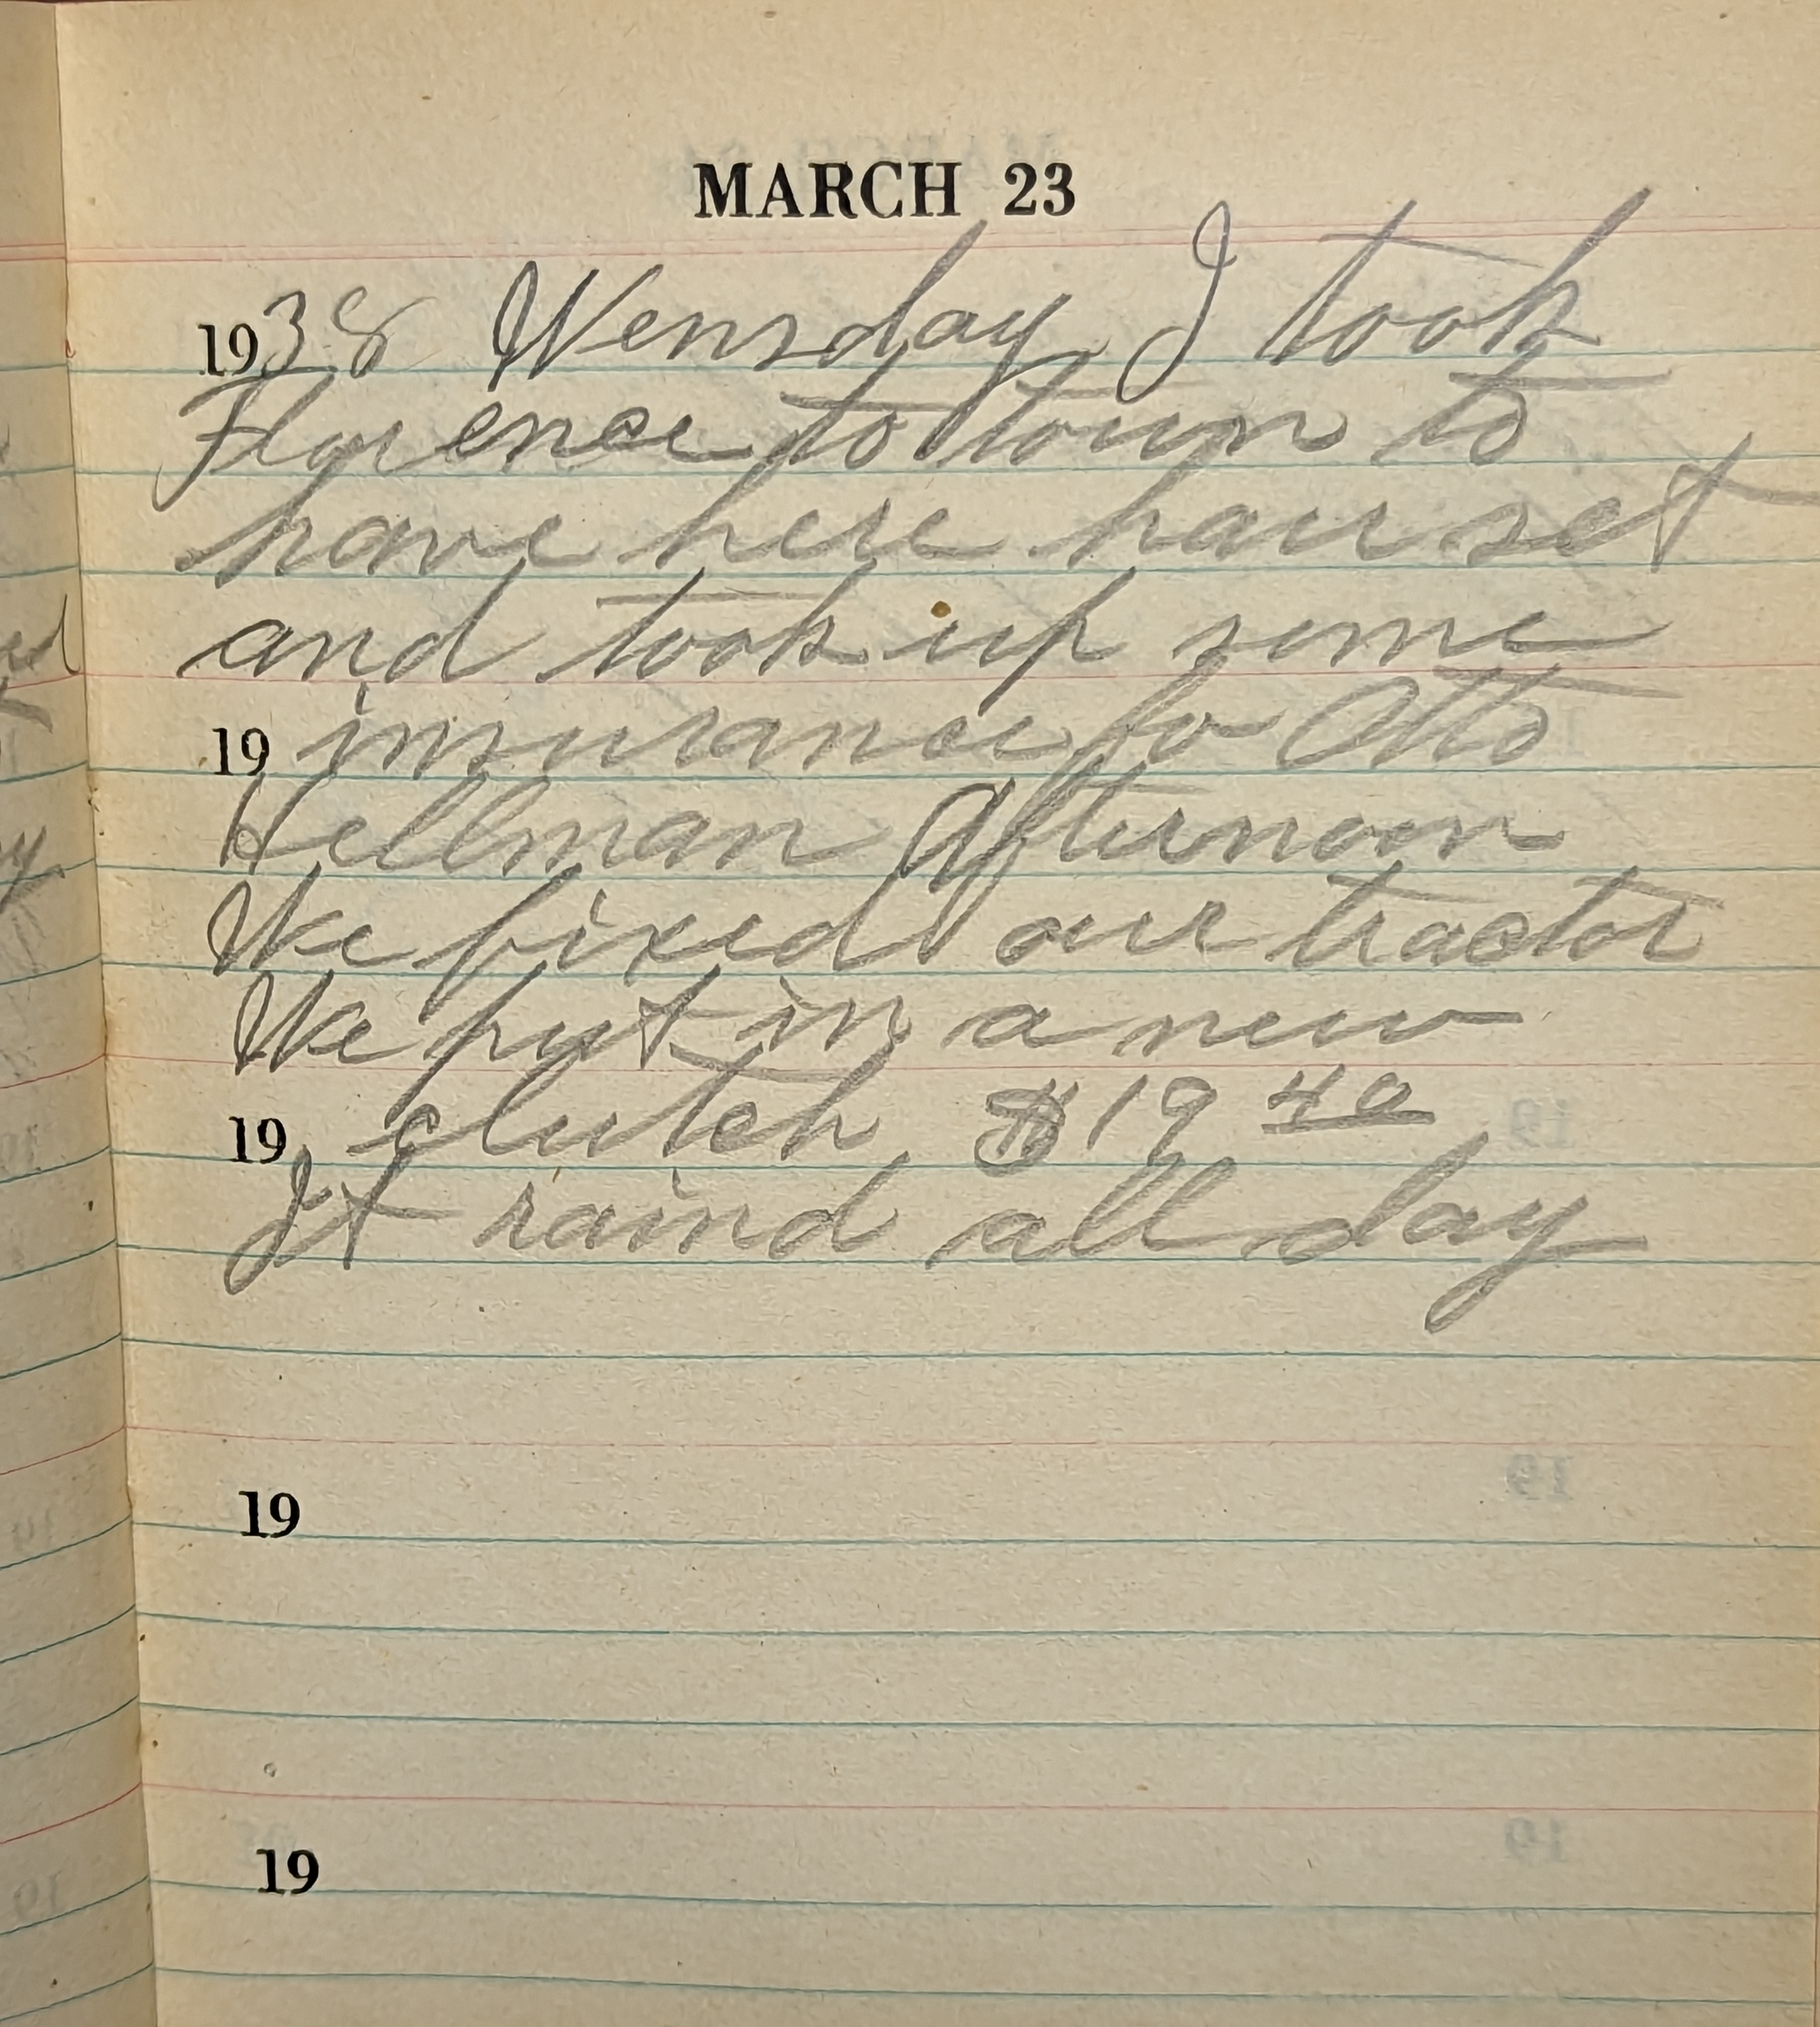 MARCH 23
1938 Wensday I took
Florence to town to
have here hair set
and took up some
19 insurance fo Otto
Hellman Afternoon
We fixed our tractor
We put in a new
19 clutch $19 40
It raind all day
19
19